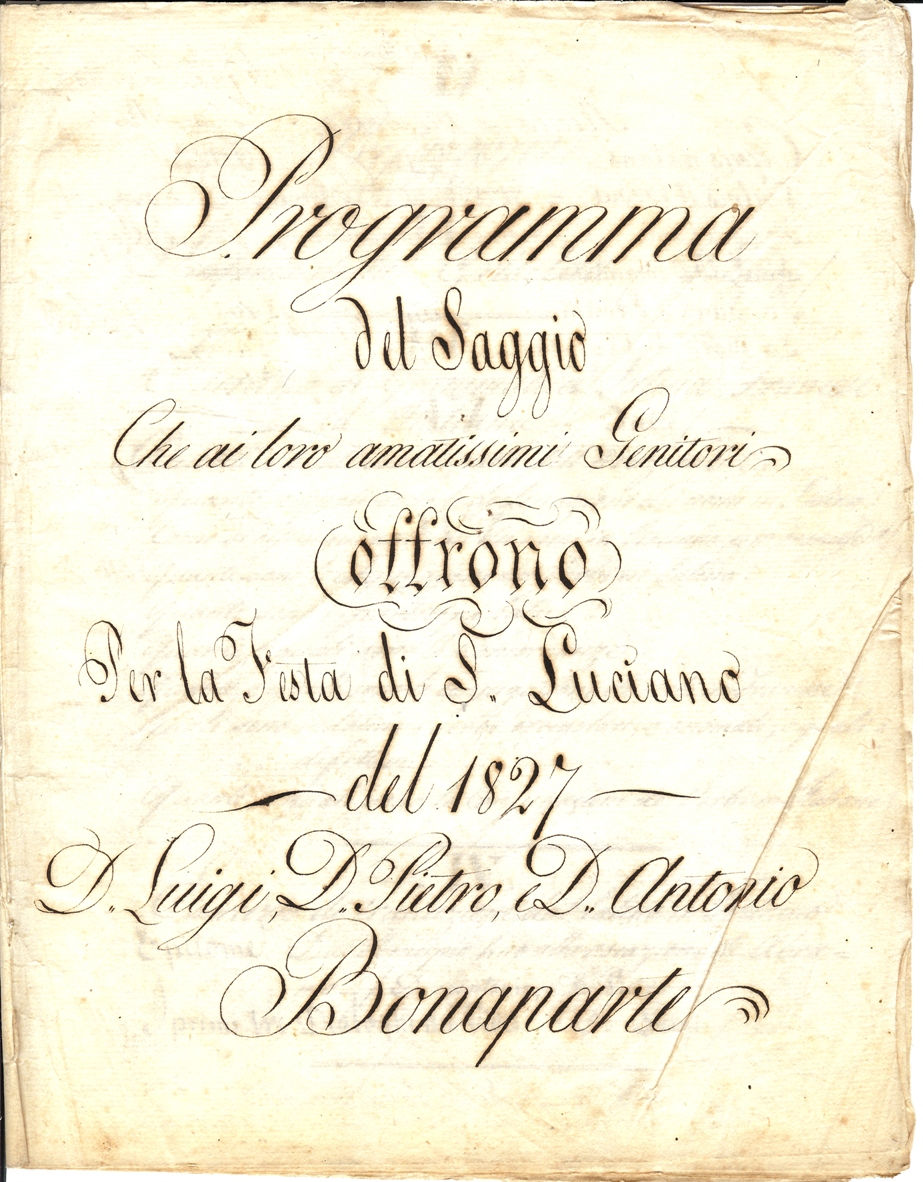 Programma
del Saggio
Che ai loro amatissimi Genitori
offrono
Per la Festa di S. Luciano
del 1827
D. Luigi, D. Pietro, e D. Antonio
Bonaparte